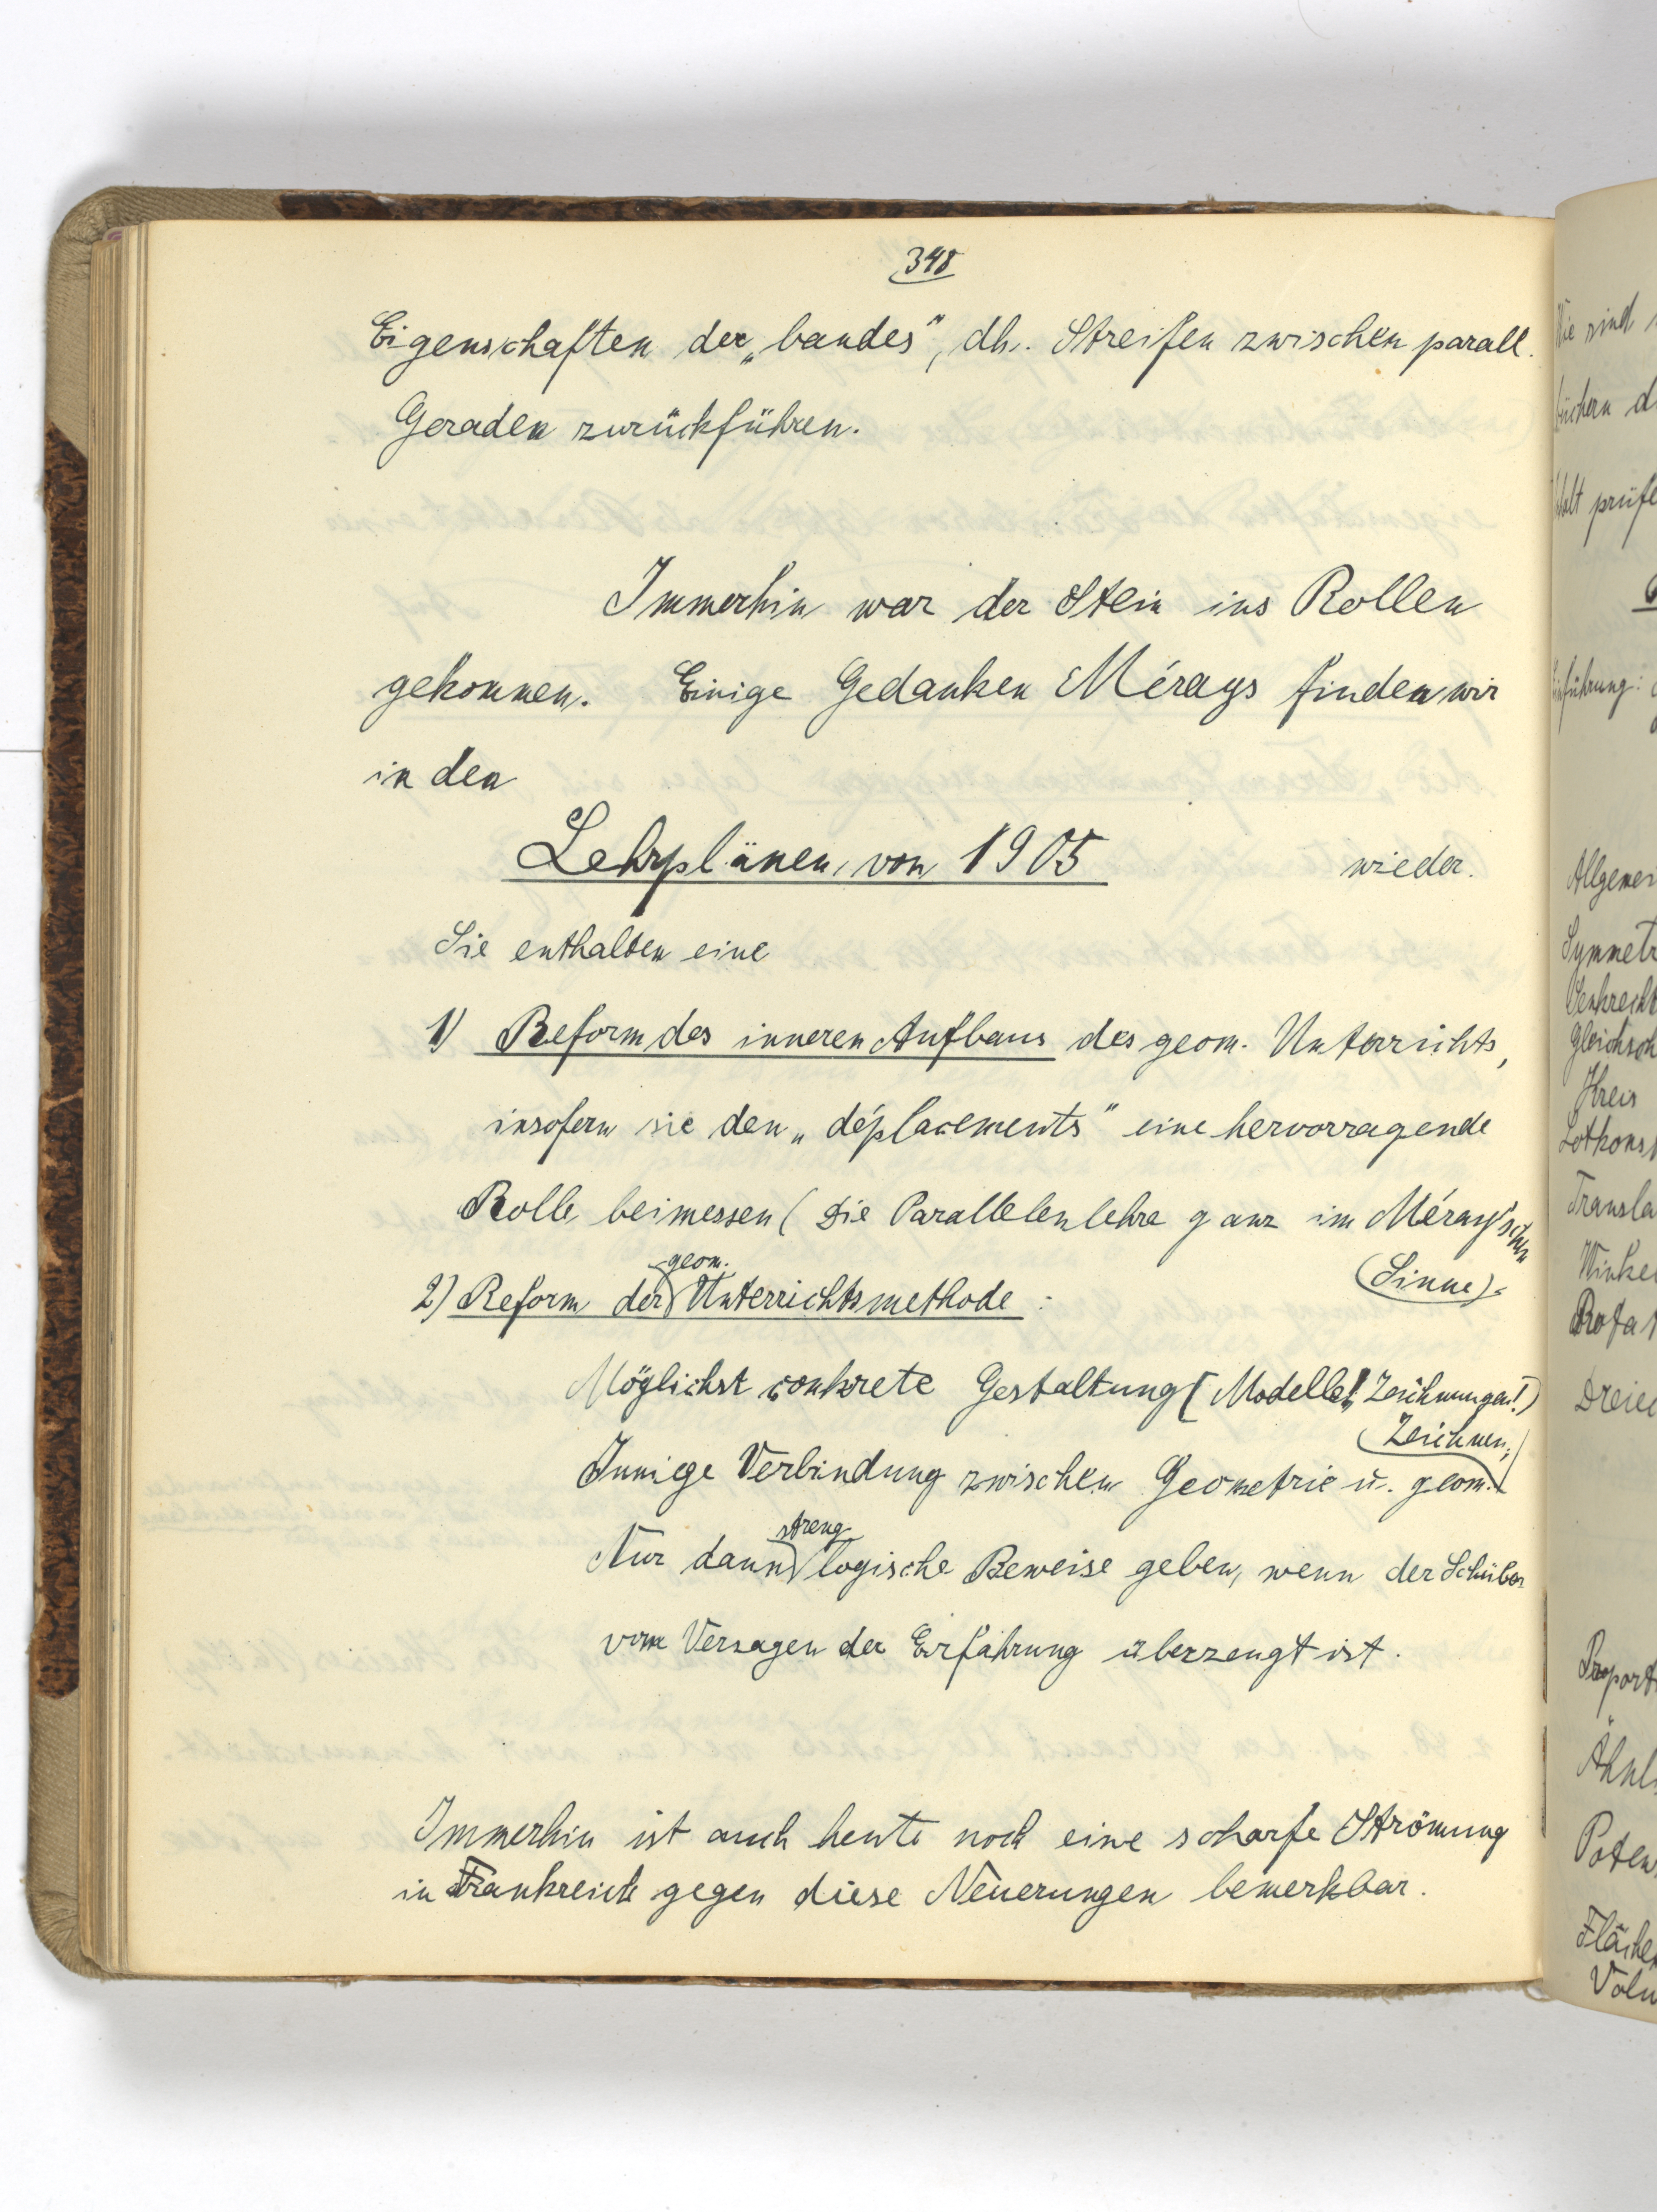 348
Eigenschaften der „bandes", dh. Streifen zwischen parall.
Geraden zurückführen.
Immerhin war der Stein ins Rollen
gekommen. Einige Gedanken Mérays finden wir
in den
Lehrplänen von 1905 wieder.
Sie enthalten eine
1) Reform des inneren Aufbaus des geom. Unterrichts,
insofern sie den „déplacements" eine hervorragende
Rolle beimessen (Die Parallelenlehre ganz im Méray'schen
Sinne).
2) Reform der geom. Unterrichtsmethode :
Möglichst conkrete Gestaltung (Modelle! Zeichnungen!)
Innige Verbindung zwischen Geometrie u. geom. Zeichnen;
Nur dann streng logische Beweise geben, wenn der Schüler
vom Versagen der Erfahrung überzeugt ist.
Immerhin ist auch heute noch eine scharfe Strömung
in Frankreich gegen diese Neuerungen bemerkbar.
Wie sind
büchern
prüfe
führung:
Allgemei
Symmetr
Senkrecht
Gleichsch
Kreis
Lotkonst
Transla
Winke
Rotat
Dreiec
Proport
Ähnl
Poten
Fläche
Volu